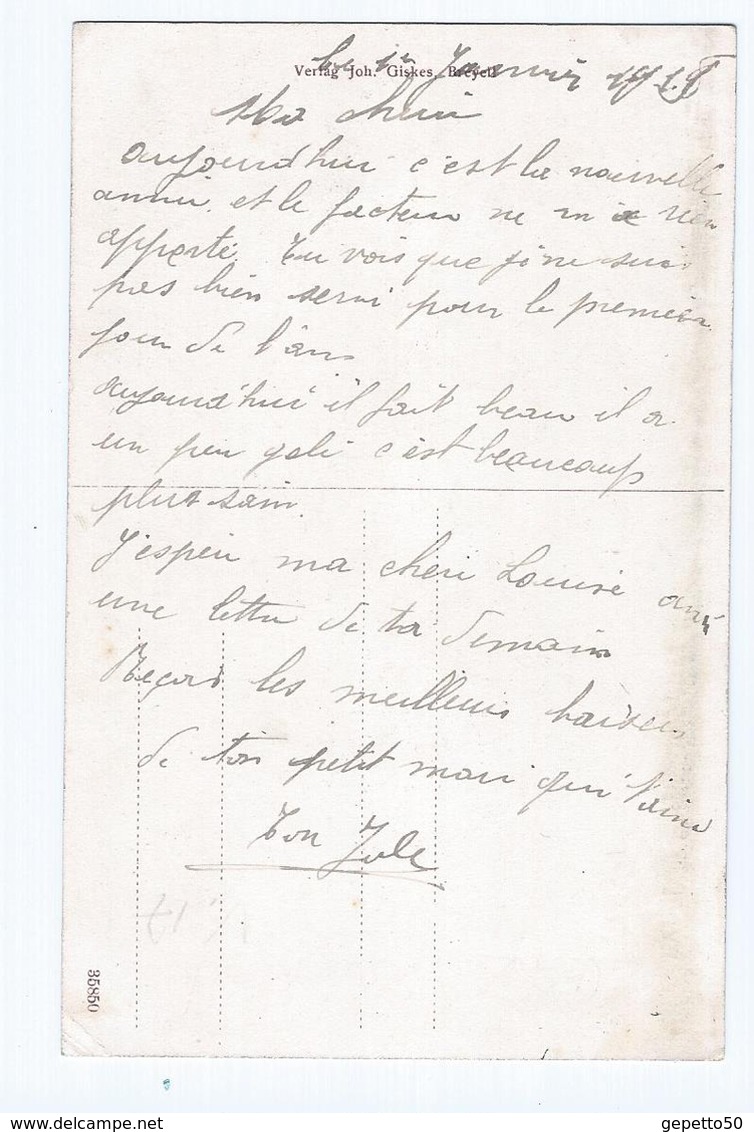 Verlag Joh. Giskes, Breyell
Le 1er Janvier 1919
Ma cheri
aujourd'hui c'est la nouvelle
anniè et le facteur ne m'a rien
apporté. Tu vois que je ne suis
pas bien servi pour le premier
jour de l'an
aujourd'hui il fait beau il a
un peu gelé c'est beaucoup
plus sain.
J'espèr ma cheri Louise
une lettre de toi demain
Reçois les meilleurs baisers
de ton petit mari qui t'aime
Ton Jule
35850
delcampe.net
gepetto50